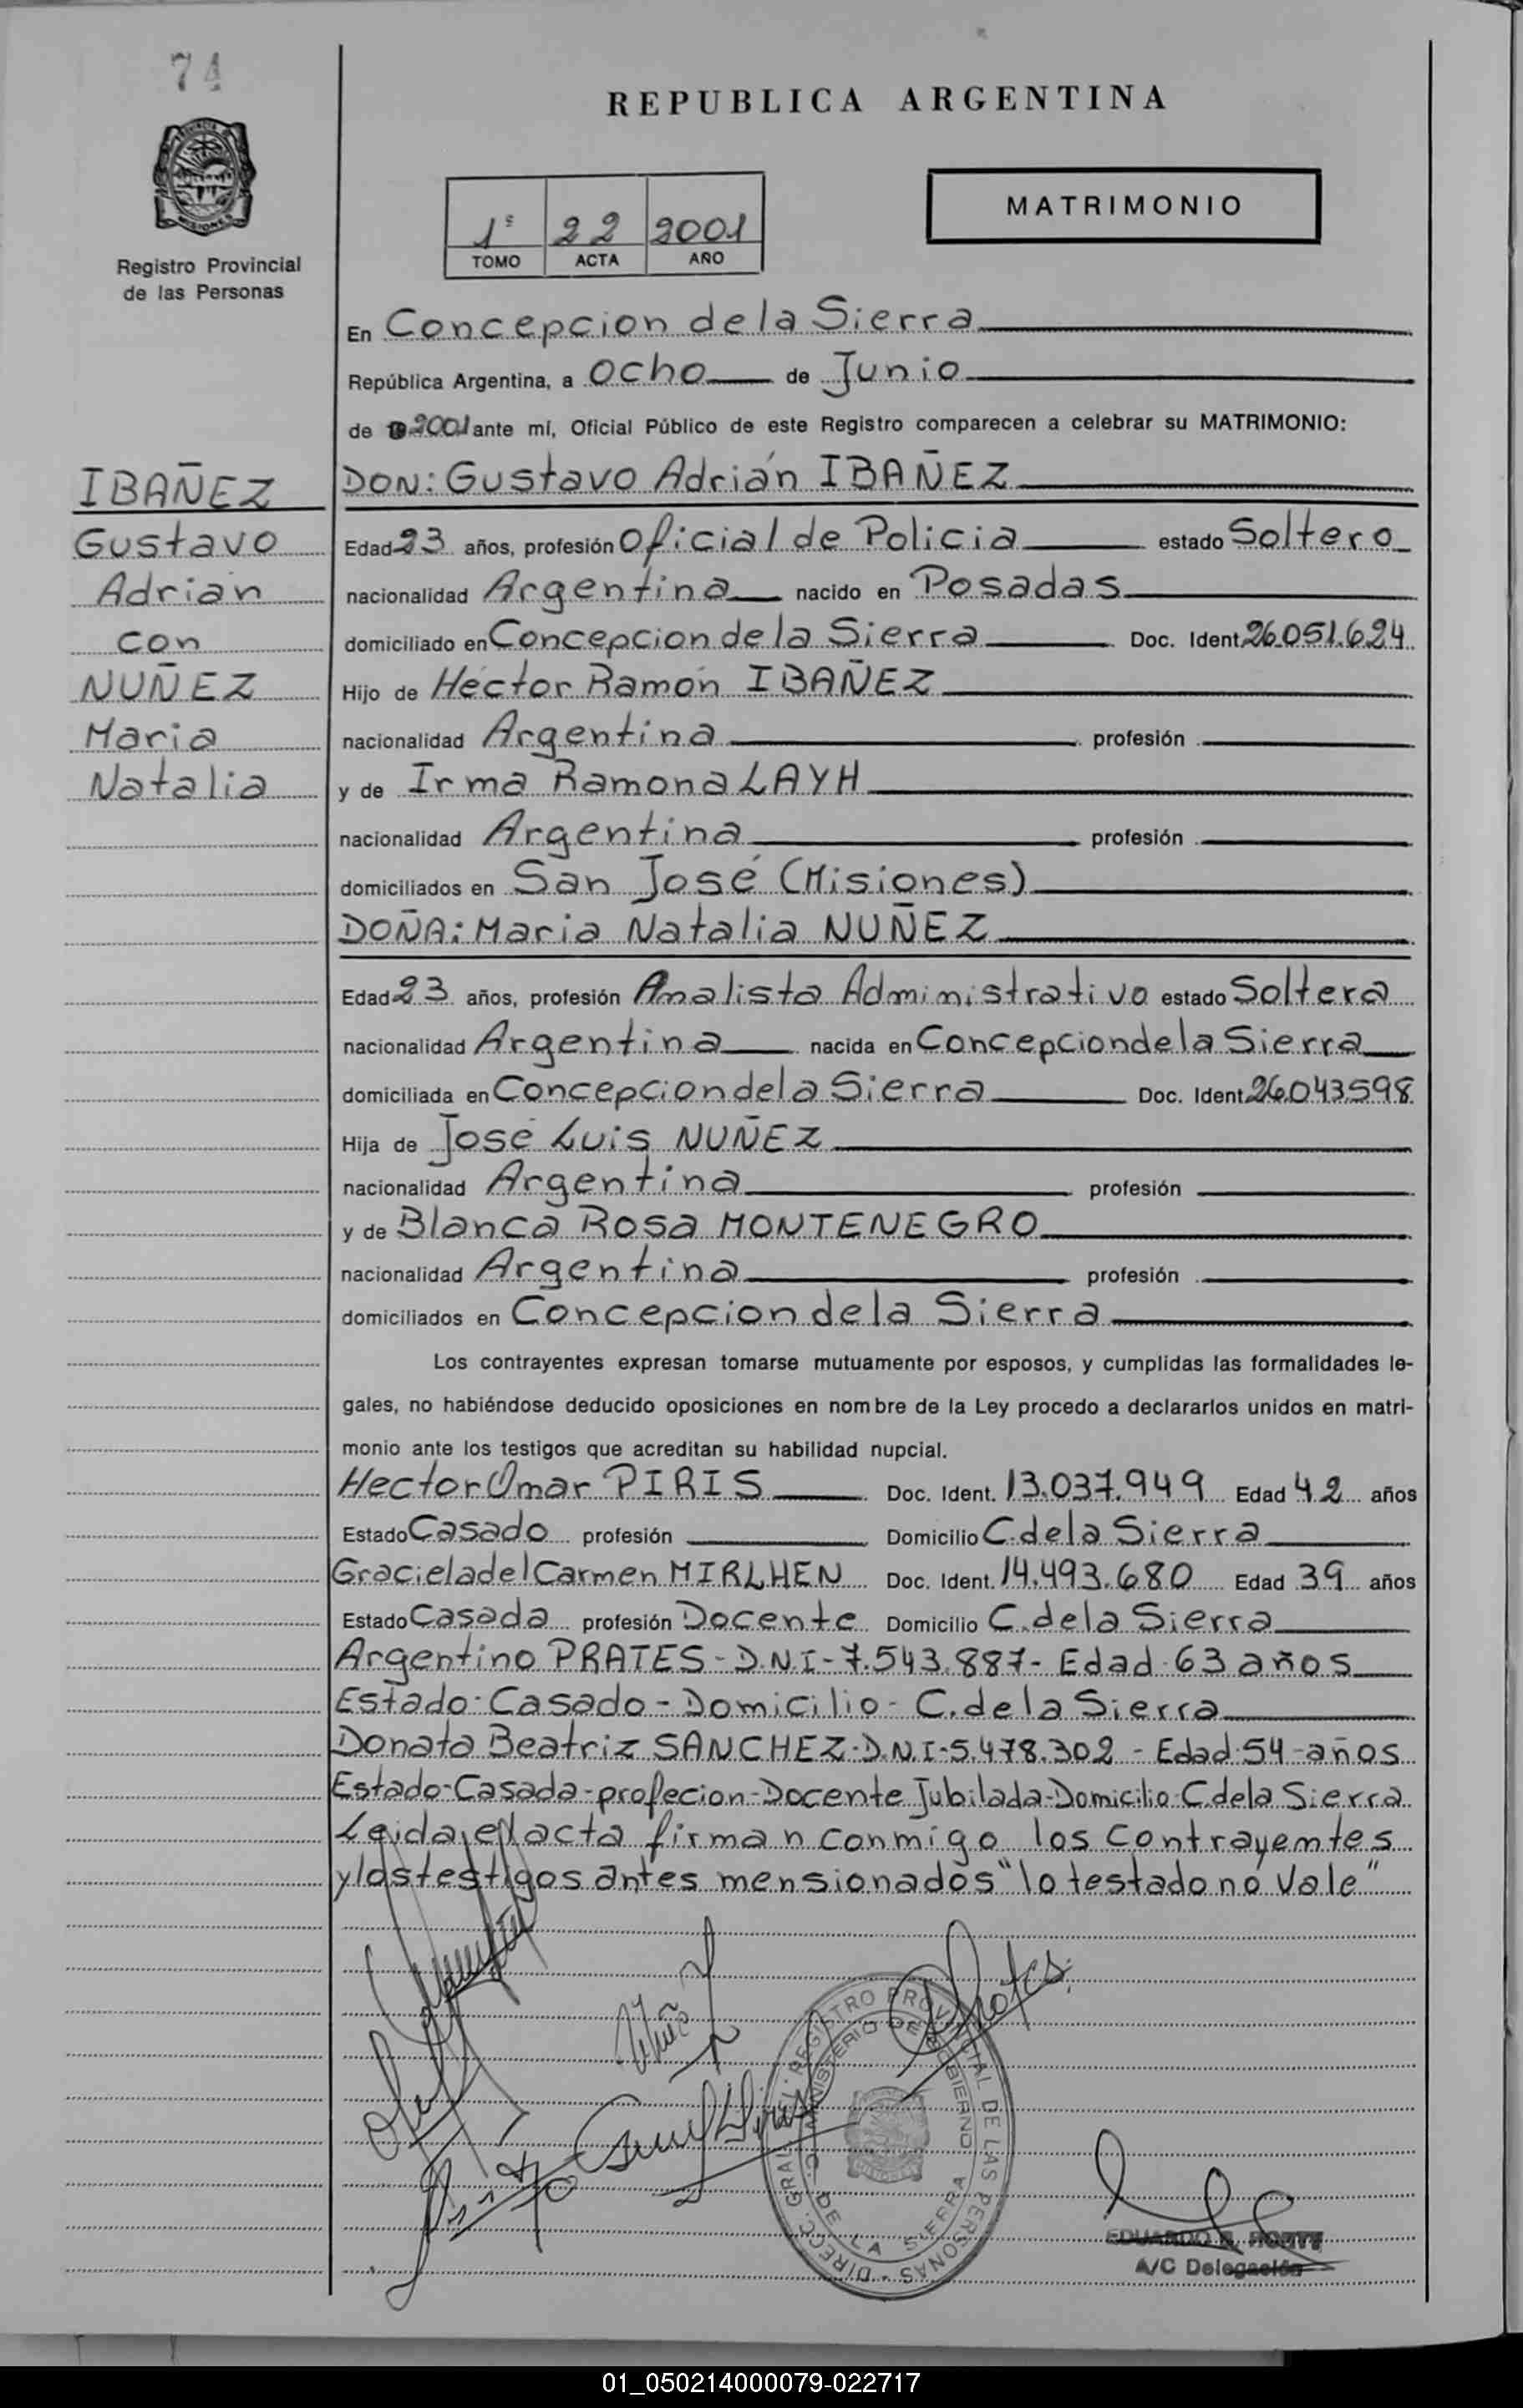 74
REPUBLICA ARGENTINA
MATRIMONIO
1º 22 2001
TOMO ACTA AÑO
MISIONES
Registro Provincial
de las Personas
En Concepcion de la Sierra
República Argentina, a Ocho de Junio
de 2001 ante mí, Oficial Público de este Registro comparecen a celebrar su MATRIMONIO:
IBAÑEZ
Gustavo
Adrián
con
NUÑEZ
Maria
Natalia
DON: Gustavo Adrián IBAÑEZ
Edad 23 años, profesión Oficial de Policia estado Soltero
nacionalidad Argentina nacido en Posadas
domiciliado en Concepcion de la Sierra Doc. Ident. 26.051.624
Hijo de Héctor Ramón IBAÑEZ
nacionalidad Argentina profesión
y de Irma Ramona LAYH
nacionalidad Argentina profesión
domiciliados en San José (Misiones)
DOÑA: Maria Natalia NUÑEZ
Edad 23 años, profesión Analista Administrativo estado Soltera
nacionalidad Argentina nacida en Concepcion de la Sierra
domiciliada en Concepcion de la Sierra Doc. Ident. 26.043.598
Hija de José Luis NUÑEZ
nacionalidad Argentina profesión
y de Blanca Rosa MONTENEGRO
nacionalidad Argentina profesión
domiciliados en Concepcion de la Sierra
Los contrayentes expresan tomarse mutuamente por esposos, y cumplidas las formalidades le-
gales, no habiéndose deducido oposiciones en nombre de la Ley procedo a declararlos unidos en matri-
monio ante los testigos que acreditan su habilidad nupcial.
Hector Omar PIRIS Doc. Ident. 13.037.949 Edad 42 años
Estado Casado profesión Domicilio C. de la Sierra
Graciela del Carmen MIRLHEN Doc. Ident. 14.493.680 Edad 39 años
Estado Casada profesión Docente Domicilio C. de la Sierra
Argentino PRATES - D.N.I - 7.543.887 - Edad 63 años
Estado - Casado - Domicilio - C. de la Sierra
Donata Beatriz SANCHEZ - D.N.I - 5.478.302 - Edad 54 - años
Estado - Casada - profecion - Docente Jubilada - Domicilio - C. de la Sierra
Leida el acta firman conmigo los contrayentes
y los testigos antes mensionados "lo testado no vale"
DIRECC. GRAL. REGISTRO PROVINCIAL DE LAS PERSONAS
MINISTERIO DE GOBIERNO
C. DE LA SIERRA
EDUARDO
A/C Delegación
01_050214000079-022717